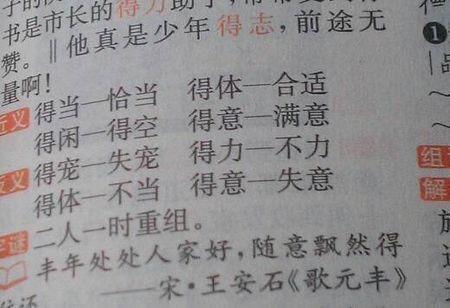 子的
书是市长的得力助手,
赞。‖他真是少年得志,前途无
量啊!
近义 得当—恰当 得体—合适
得闲—得空 得意—满意
反义 得宠—失宠 得力—不力
得体—不当 得意—失意
字谜 二人一时重组。
丰年处处人家好,随意飘然得
——宋·王安石《歌元丰》
❶
组
解